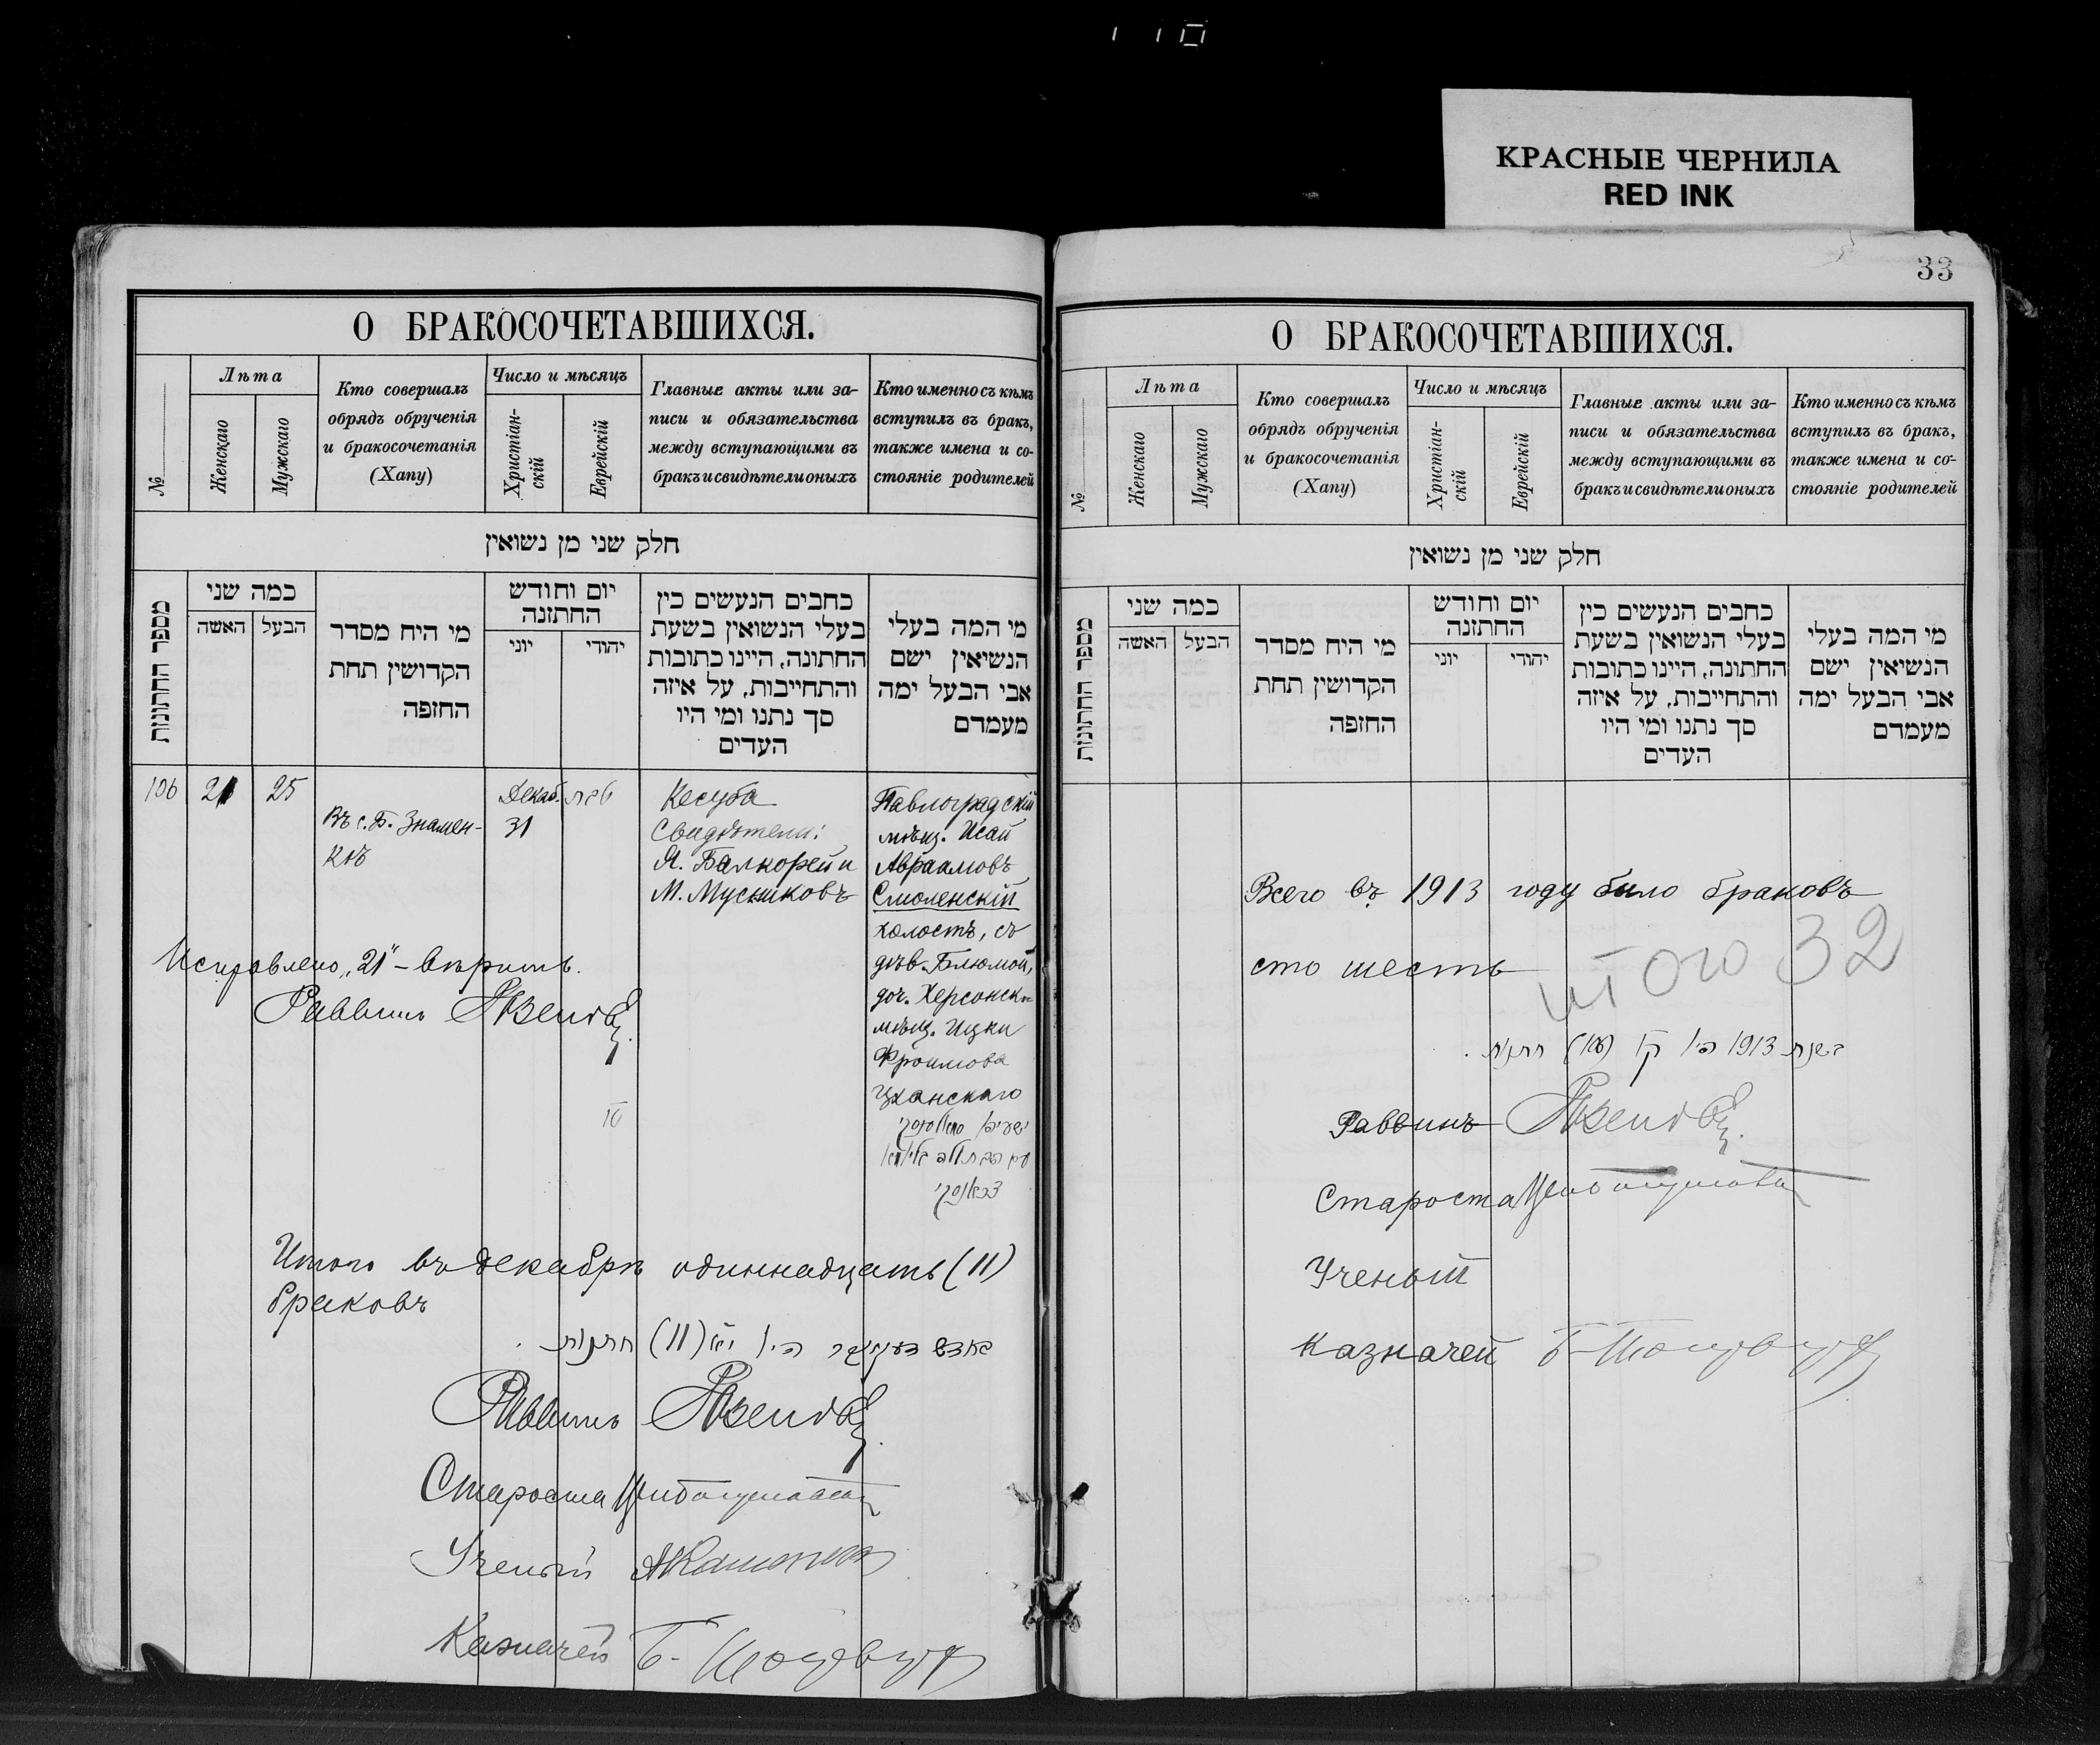 КРАСНЫЕ ЧЕРНИЛА
RED INK
О БРАКОСОЧЕТАВШИХСЯ.
№
Лѣта
Женскаго
Мужскаго
Кто совершалъ
обрядъ обрученія
и бракосочетанія
(Хапу)
Число и мѣсяцъ
Христіан-
скій
Еврейскій
Главные акты или за-
писи и обязательства
между вступающими въ
бракъ и свидѣтели оныхъ
Кто именно съ кѣмъ
вступилъ въ бракъ,
также имена и со-
стояніе родителей
חלק שני מן נשואין
מספר החתונות
כמה שני
האשה
הבעל
מי היח מסדר
הקדושין תחת
החזפה
יום וחודש
החתזנה
יוני
יהודי
כחבים הנעשים כין
בעלי הנשואין בשעת
החתונה, היינו כתובות
והתחייבות, על איזה
סך נתנו ומי היו
העדים
מי המה בעלי
הנשיאין ישם
אבי הבעל ימה
מעמדם
106
21
25
Въ с. Б. Знамен-
кѣ
Декаб.
31
טבת
Кесуба
Свидѣтели:
Я. Балкорей и
М. Мусиковъ
Павлоградскій
мѣщ. Исай
Авраамовъ
Смоленскій
холостъ, съ
дѣв. Блюмой,
доч. Херсонск.
мѣщ. Ицки
Фроимова
Цханскаго
Исправлено „21" – вѣрить.
Раввинъ
Итого въ декабрѣ одиннадцать (11)
браковъ
(11) חתונות
Раввинъ
Староста
Ученый
Казначей
33
О БРАКОСОЧЕТАВШИХСЯ.
№
Лѣта
Женскаго
Мужскаго
Кто совершалъ
обрядъ обрученія
и бракосочетанія
(Хапу)
Число и мѣсяцъ
Христіан-
скій
Еврейскій
Главные акты или за-
писи и обязательства
между вступающими въ
бракъ и свидѣтели оныхъ
Кто именно съ кѣмъ
вступилъ въ бракъ,
также имена и со-
стояніе родителей
חלק שני מן נשואין
מספר החתונות
כמה שני
האשה
הבעל
מי היח מסדר
הקדושין תחת
החזפה
יום וחודש
החתזנה
יוני
יהודי
כחבים הנעשים כין
בעלי הנשואין בשעת
החתונה, היינו כתובות
והתחייבות, על איזה
סך נתנו ומי היו
העדים
מי המה בעלי
הנשיאין ישם
אבי הבעל ימה
מעמדם
Всего въ 1913 году было браковъ
сто шесть
итого 32
בשנת 1913 היו קו (106) חתונות.
Раввинъ
Староста
Ученый
Казначей